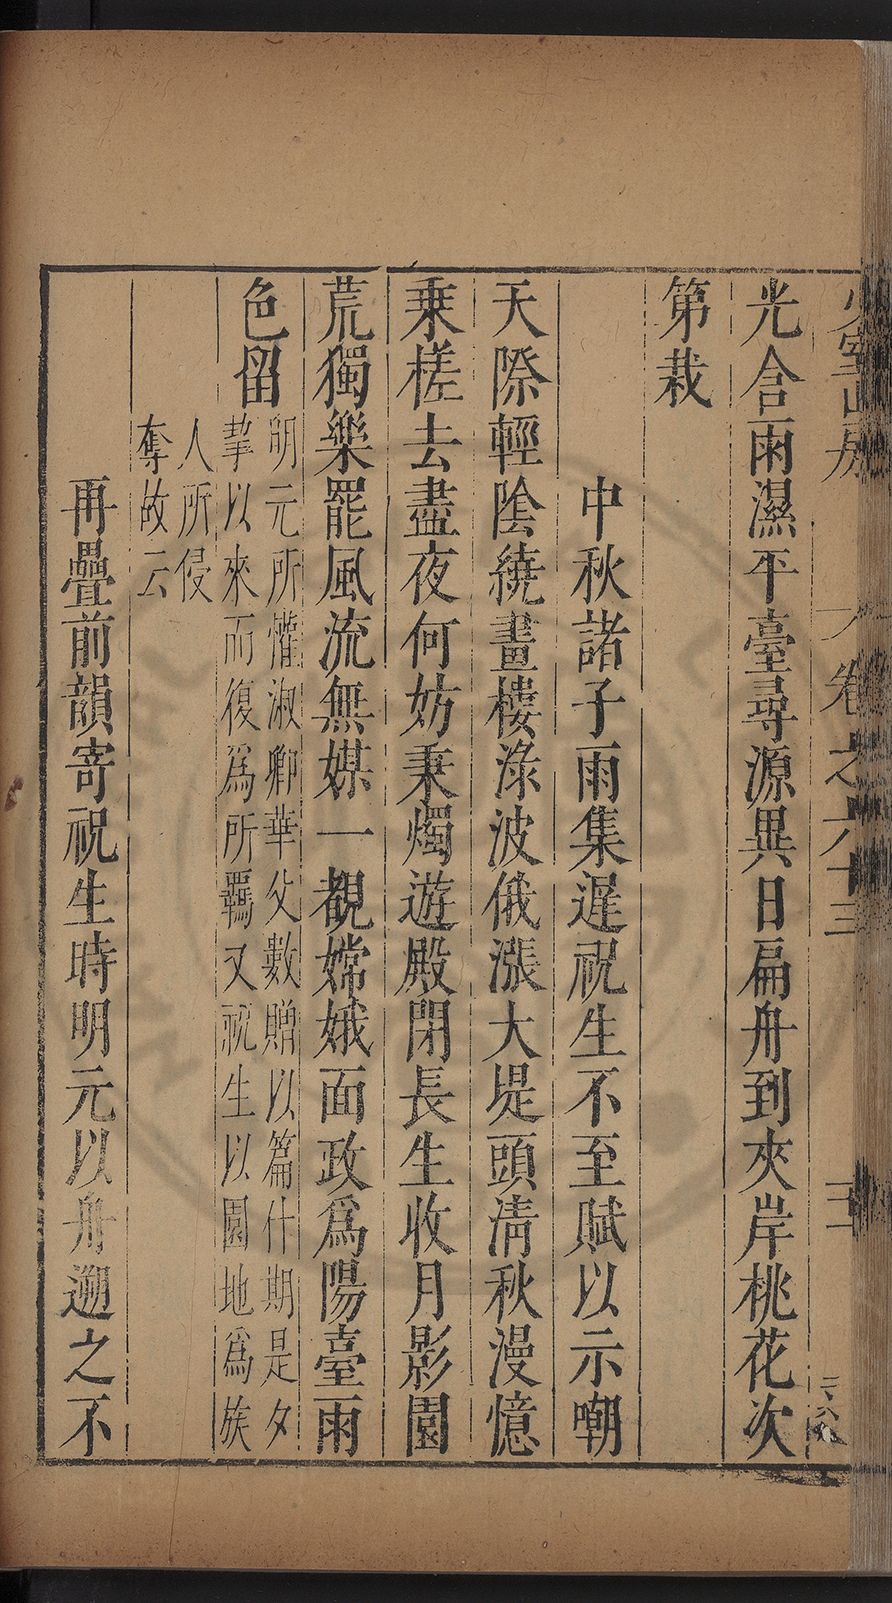 少室山房
卷之六十三
三
光含雨濕平臺尋源異日扁舟到夾岸桃花次
第栽
中秋諸子雨集遲祝生不至賦以示嘲
天際輕陰繞畫樓淥波俄漲大堤頭清秋漫憶
乘槎去盡夜何妨秉燭遊殿閉長生收月影園
荒獨樂罷風流無媒一覩嫦娥面政爲陽臺雨
色留
明元所懽淑卿華父數贈以篇什期是夕
挈以來而復爲所羈又祝生以園地爲族
人所侵
奪故云
再疊前韻寄祝生時明元以舟遡之不